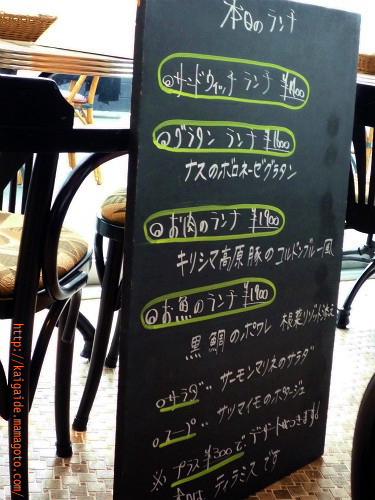 本日のランチ
◎サンドウィッチ ランチ
◎グラタン ランチ ¥1600
ナスのボロネーゼグラタン
◎お肉のランチ ¥1900
キリシマ高原豚のコルドンブルー風
◎お魚のランチ ¥1900
黒鯛のポワレ 根菜リゾット添え
◎サラダ サーモンマリネのサラダ
◎スープ サツマイモのポタージュ
※プラス¥300でデザートもつきます!!
ティラミスです
http://kaigaide.mamagoto.com/